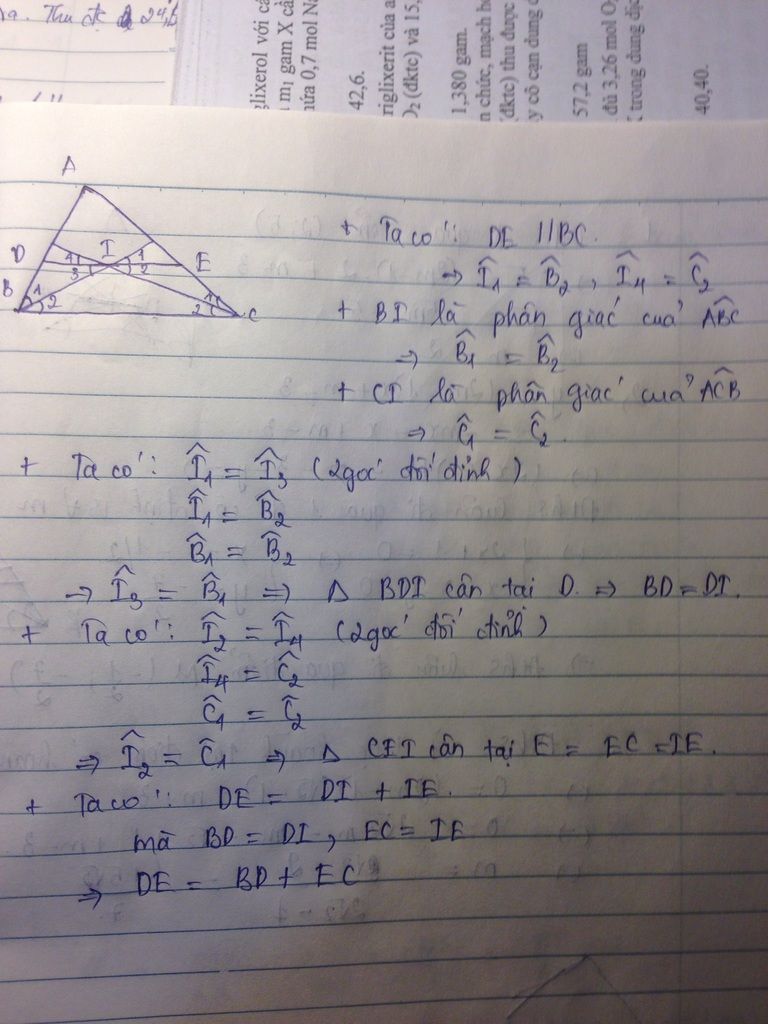 Thu đc 24,
glixerol với
m₁ gam X
0,7 mol
42,6.
riglixerit của
O₂ (đktc) và 15,
1,380 gam.
n chức, mạch
(đktc) thu được
y cô cạn dung
57,2 gam
đủ 3,26 mol O
trong dung
40,40.
A
D
I
E
B
C
1
4
3
1
2
1
2
1
2
+ Ta có: DE // BC.
⇒ Î₁ = B̂₂, Î₄ = Ĉ₂
+ BI là phân giác của ABC
⇒ B̂₁ = B̂₂
+ CI là phân giác của ACB
⇒ Ĉ₁ = Ĉ₂.
+ Ta có: Î₁ = Î₃ (2góc đối đỉnh)
Î₁ = B̂₂
B̂₁ = B̂₂
⇒ Î₃ = B̂₁ ⇒ Δ BDI cân tại D. ⇒ BD = DI.
+ Ta có: Î₂ = Î₄ (2góc đối đỉnh)
Î₄ = Ĉ₂
Ĉ₁ = Ĉ₂
⇒ Î₂ = Ĉ₁ ⇒ Δ CEI cân tại E = EC = IE.
+ Ta có: DE = DI + IE.
mà BD = DI, EC = IE
⇒ DE = BD + EC